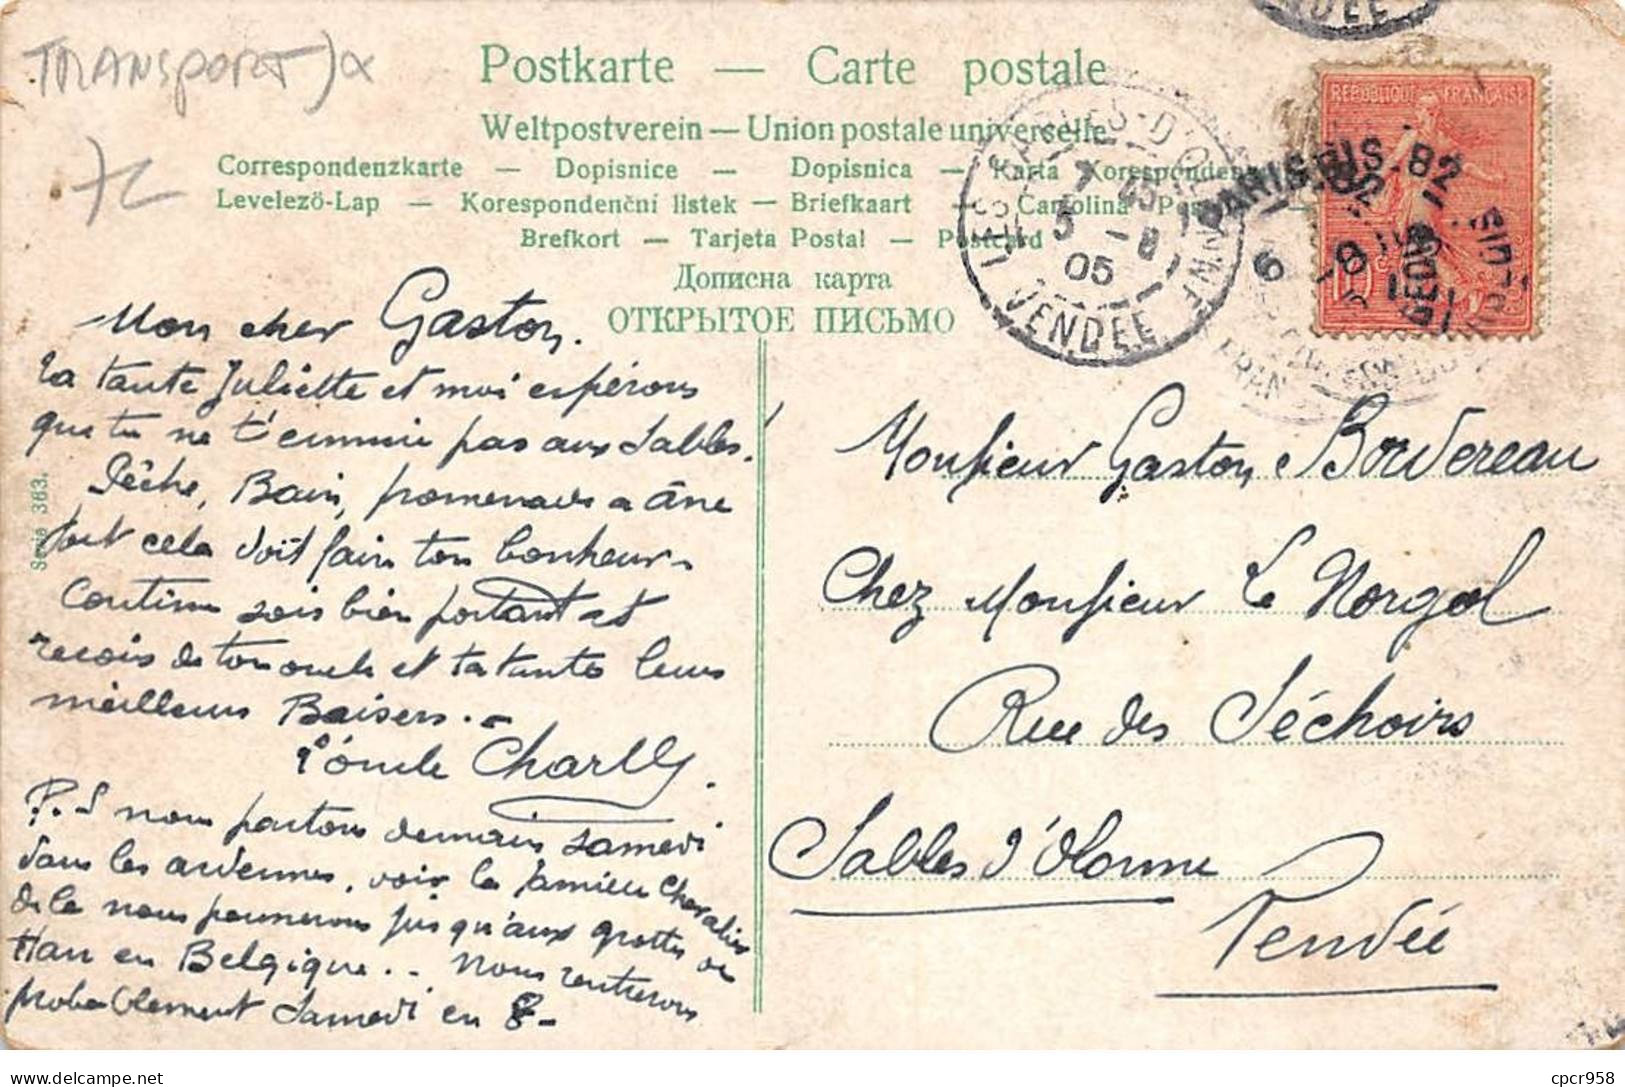 TRANSPORT
7c
Postkarte — Carte postale
Weltpostverein — Union postale universelle
Correspondenzkarte — Dopisnice — Dopisnica — Karta Korespondens
Levelező-Lap — Korespondenční listek — Briefkaart — Cartolina Pos
Brefkort — Tarjeta Postal — Postcard
Дописна карта
ОТКРЫТОЕ ПИСЬМО
REPUBLIQUE FRANÇAISE
LES SABLES-D'OLONNE
7 45
5 - 8
05
VENDEE
VENDEE
PARIS
RIS. 82
6 - 8
Serie 363.
Mon cher Gaston.
Ta tante Juliette et moi espérons
que tu ne t'ennuie pas aux Sables!
Pêche, Bain, promenades a âne
tout cela doit fair ton bonheur.
Continu sois bien portant et
recois de ton oncle et ta tante leurs
meilleurs Baisers. -
l'oncle Charlly.
P.S nous partons demain samedi
dans les ardennes, voir la famille Chevalier
de la nous pousserons jusqu'aux grottes de
Han en Belgique.. Nous rentrerons
probablement Samedi en 8 -
Monsieur Gaston Bordereau
Chez Monsieur Le Norgol
Rue des Séchoirs
Sables d'Olonne
Vendée
cpcr958